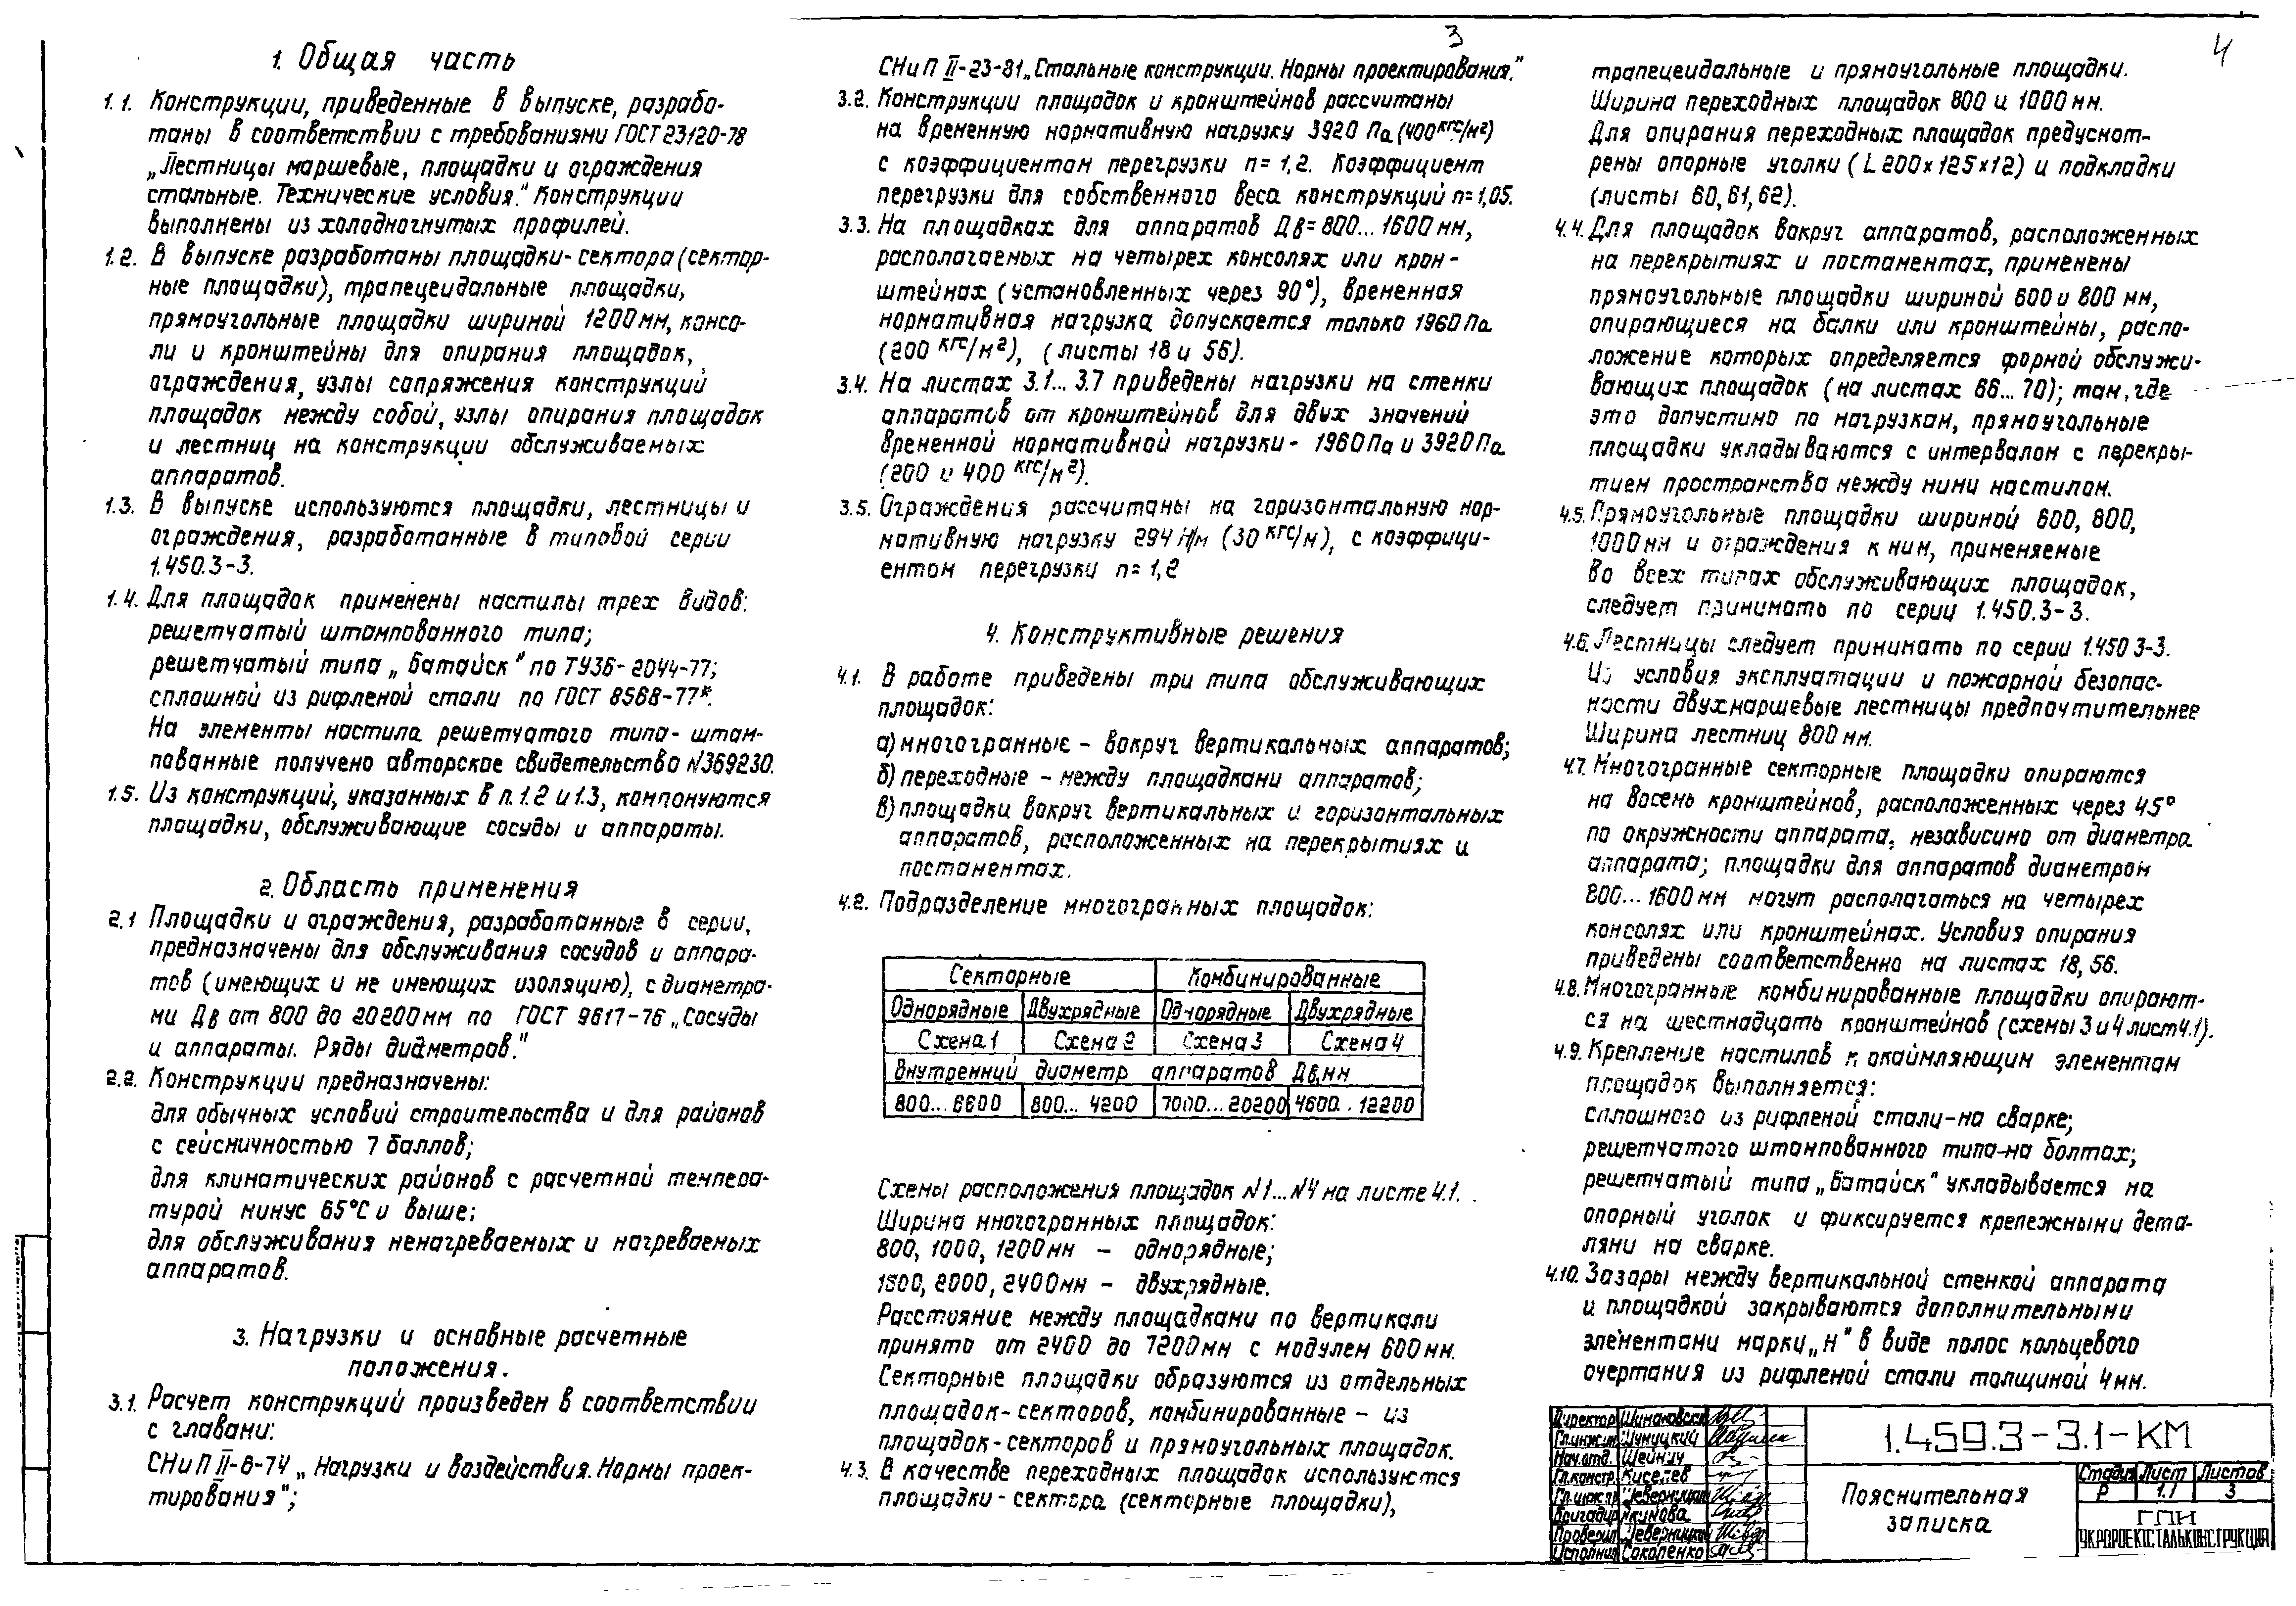 3
4
1. Общая часть
1.1. Конструкции, приведенные в выпуске, разрабо-
таны в соответствии с требованиями ГОСТ 23120-78
„Лестницы маршевые, площадки и ограждения
стальные. Технические условия." Конструкции
выполнены из холодногнутых профилей.
1.2. В выпуске разработаны площадки-сектора (сектор-
ные площадки), трапецеидальные площадки,
прямоугольные площадки шириной 1200 мм, консо-
ли и кронштейны для опирания площадок,
ограждения, узлы сопряжения конструкций
площадок между собой, узлы опирания площадок
и лестниц на конструкции обслуживаемых
аппаратов.
1.3. В выпуске используются площадки, лестницы и
ограждения, разработанные в типовой серии
1.450.3-3.
1.4. Для площадок применены настилы трех видов:
решетчатый штампованного типа;
решетчатый типа „Батайск" по ТУ36-2044-77;
сплошной из рифленой стали по ГОСТ 8568-77*.
На элементы настила решетчатого типа - штам-
пованные получено авторское свидетельство №369230.
1.5. Из конструкций, указанных в п.1.2 и 1.3, компонуются
площадки, обслуживающие сосуды и аппараты.
2. Область применения
2.1 Площадки и ограждения, разработанные в серии,
предназначены для обслуживания сосудов и аппара-
тов (имеющих и не имеющих изоляцию), с диаметра-
ми Дв от 800 до 20200 мм по ГОСТ 9617-76 „Сосуды
и аппараты. Ряды диаметров."
2.2. Конструкции предназначены:
для обычных условий строительства и для районов
с сейсмичностью 7 баллов;
для климатических районов с расчетной темпера-
турой минус 65°С и выше;
для обслуживания ненагреваемых и нагреваемых
аппаратов.
3. Нагрузки и основные расчетные
положения.
3.1. Расчет конструкций произведен в соответствии
с главами:
СНиП II-6-74 „Нагрузки и воздействия. Нормы проек-
тирования";
СНиП II-23-81 „Стальные конструкции. Нормы проектирования."
3.2. Конструкции площадок и кронштейнов рассчитаны
на временную нормативную нагрузку 3920 Па (400 кгс/м²)
с коэффициентом перегрузки n=1,2. Коэффициент
перегрузки для собственного веса конструкций n=1,05.
3.3. На площадках для аппаратов Дв=800...1600 мм,
располагаемых на четырех консолях или крон-
штейнах (установленных через 90°), временная
нормативная нагрузка допускается только 1960 Па
(200 кгс/м²), (листы 18 и 56).
3.4. На листах 3.1...3.7 приведены нагрузки на стенки
аппаратов от кронштейнов для двух значений
временной нормативной нагрузки - 1960 Па и 3920 Па
(200 и 400 кгс/м²).
3.5. Ограждения рассчитаны на горизонтальную нор-
мативную нагрузку 294 Н/м (30 кгс/м), с коэффици-
ентом перегрузки n=1,2
4. Конструктивные решения
4.1. В работе приведены три типа обслуживающих
площадок:
а) многогранные - вокруг вертикальных аппаратов;
б) переходные - между площадками аппаратов;
в) площадки вокруг вертикальных и горизонтальных
аппаратов, расположенных на перекрытиях и
постаментах.
4.2. Подразделение многогранных площадок:
Секторные Комбинированные
Однорядные Двухрядные Однорядные Двухрядные
Схема 1 Схема 2 Схема 3 Схема 4
Внутренний диаметр аппаратов Дв,мм
800...6600 800...4200 7000...20200 4600...12200
Схемы расположения площадок №1...№4 на листе 4.1.
Ширина многогранных площадок:
800, 1000, 1200 мм - однорядные;
1500, 2000, 2400 мм - двухрядные.
Расстояние между площадками по вертикали
принято от 2400 до 7200 мм с модулем 600 мм.
Секторные площадки образуются из отдельных
площадок-секторов, комбинированные - из
площадок-секторов и прямоугольных площадок.
4.3. В качестве переходных площадок используются
площадки-сектора (секторные площадки),
трапецеидальные и прямоугольные площадки.
Ширина переходных площадок 800 и 1000 мм.
Для опирания переходных площадок предусмот-
рены опорные уголки (L 200×125×12) и подкладки
(листы 60,61,62).
4.4. Для площадок вокруг аппаратов, расположенных
на перекрытиях и постаментах, применены
прямоугольные площадки шириной 600 и 800 мм,
опирающиеся на балки или кронштейны, распо-
ложение которых определяется формой обслужи-
вающих площадок (на листах 66...70); там, где
это допустимо по нагрузкам, прямоугольные
площадки укладываются с интервалом с перекры-
тием пространства между ними настилом.
4.5. Прямоугольные площадки шириной 600, 800,
1000 мм и ограждения к ним, применяемые
во всех типах обслуживающих площадок,
следует принимать по серии 1.450.3-3.
4.6. Лестницы следует принимать по серии 1.450 3-3.
Из условия эксплуатации и пожарной безопас-
ности двухмаршевые лестницы предпочтительнее
Ширина лестниц 800 мм.
4.7. Многогранные секторные площадки опираются
на восемь кронштейнов, расположенных через 45°
по окружности аппарата, независимо от диаметра
аппарата; площадки для аппаратов диаметром
800...1600 мм могут располагаться на четырех
консолях или кронштейнах. Условия опирания
приведены соответственно на листах 18, 56.
4.8. Многогранные комбинированные площадки опирают-
ся на шестнадцать кронштейнов (схемы 3 и 4 лист 4.1).
4.9. Крепление настилов к окаймляющим элементам
площадок выполняется:
сплошного из рифленой стали-на сварке;
решетчатого штампованного типа-на болтах;
решетчатый типа „Батайск" укладывается на
опорный уголок и фиксируется крепежными дета-
лями на сварке.
4.10. Зазоры между вертикальной стенкой аппарата
и площадкой закрываются дополнительными
элементами марки „Н" в виде полос кольцевого
очертания из рифленой стали толщиной 4 мм.
Директор Шимановский
Гл.инж.ин Шуницкий
Нач.отд. Шейнич
Гл.констр. Киселев
Гл.инж.пр
Бригадир Якимова
Проверил
Исполнил Соколенко
1.459.3-3.1-КМ
Пояснительная
записка
Стадия Лист Листов
Р 1.1 3
ГПИ
УКРПРОЕКТСТАЛЬКОНСТРУКЦИЯ